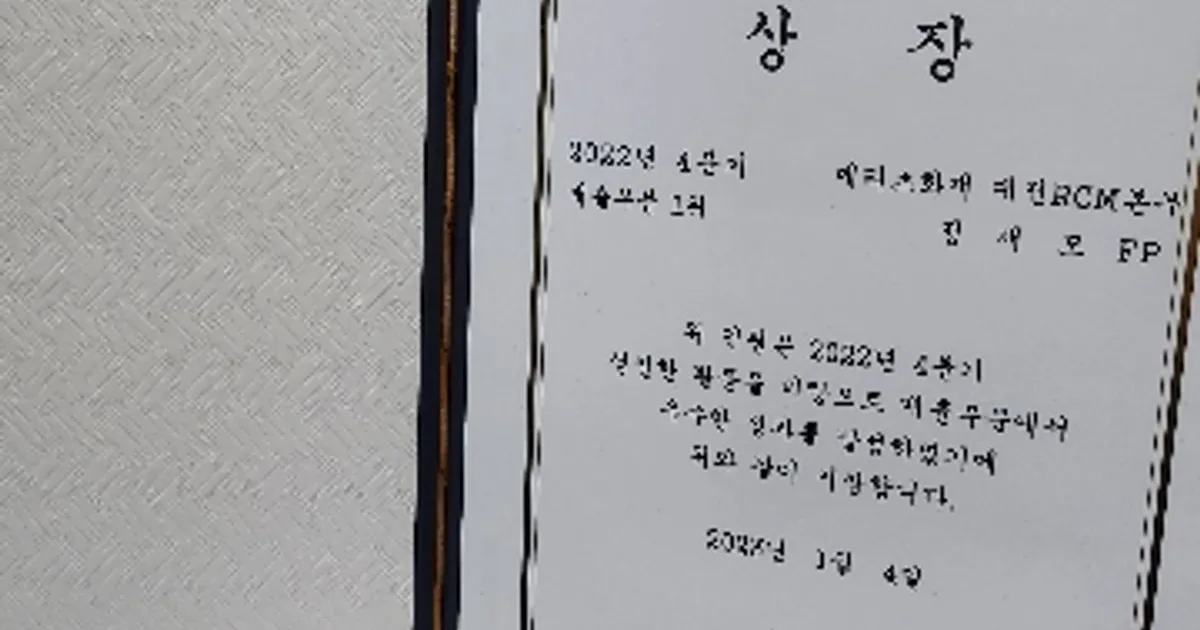 상 장
2022년 4분기
매출부문 1위
메리츠화재 대전RCM본부
모 FP
위 인원은 2022년 4분기
활동을 바탕으로 매출부문에서
우수한 성과를 달성하였기에
위와 같이 시상합니다.
1월 4일